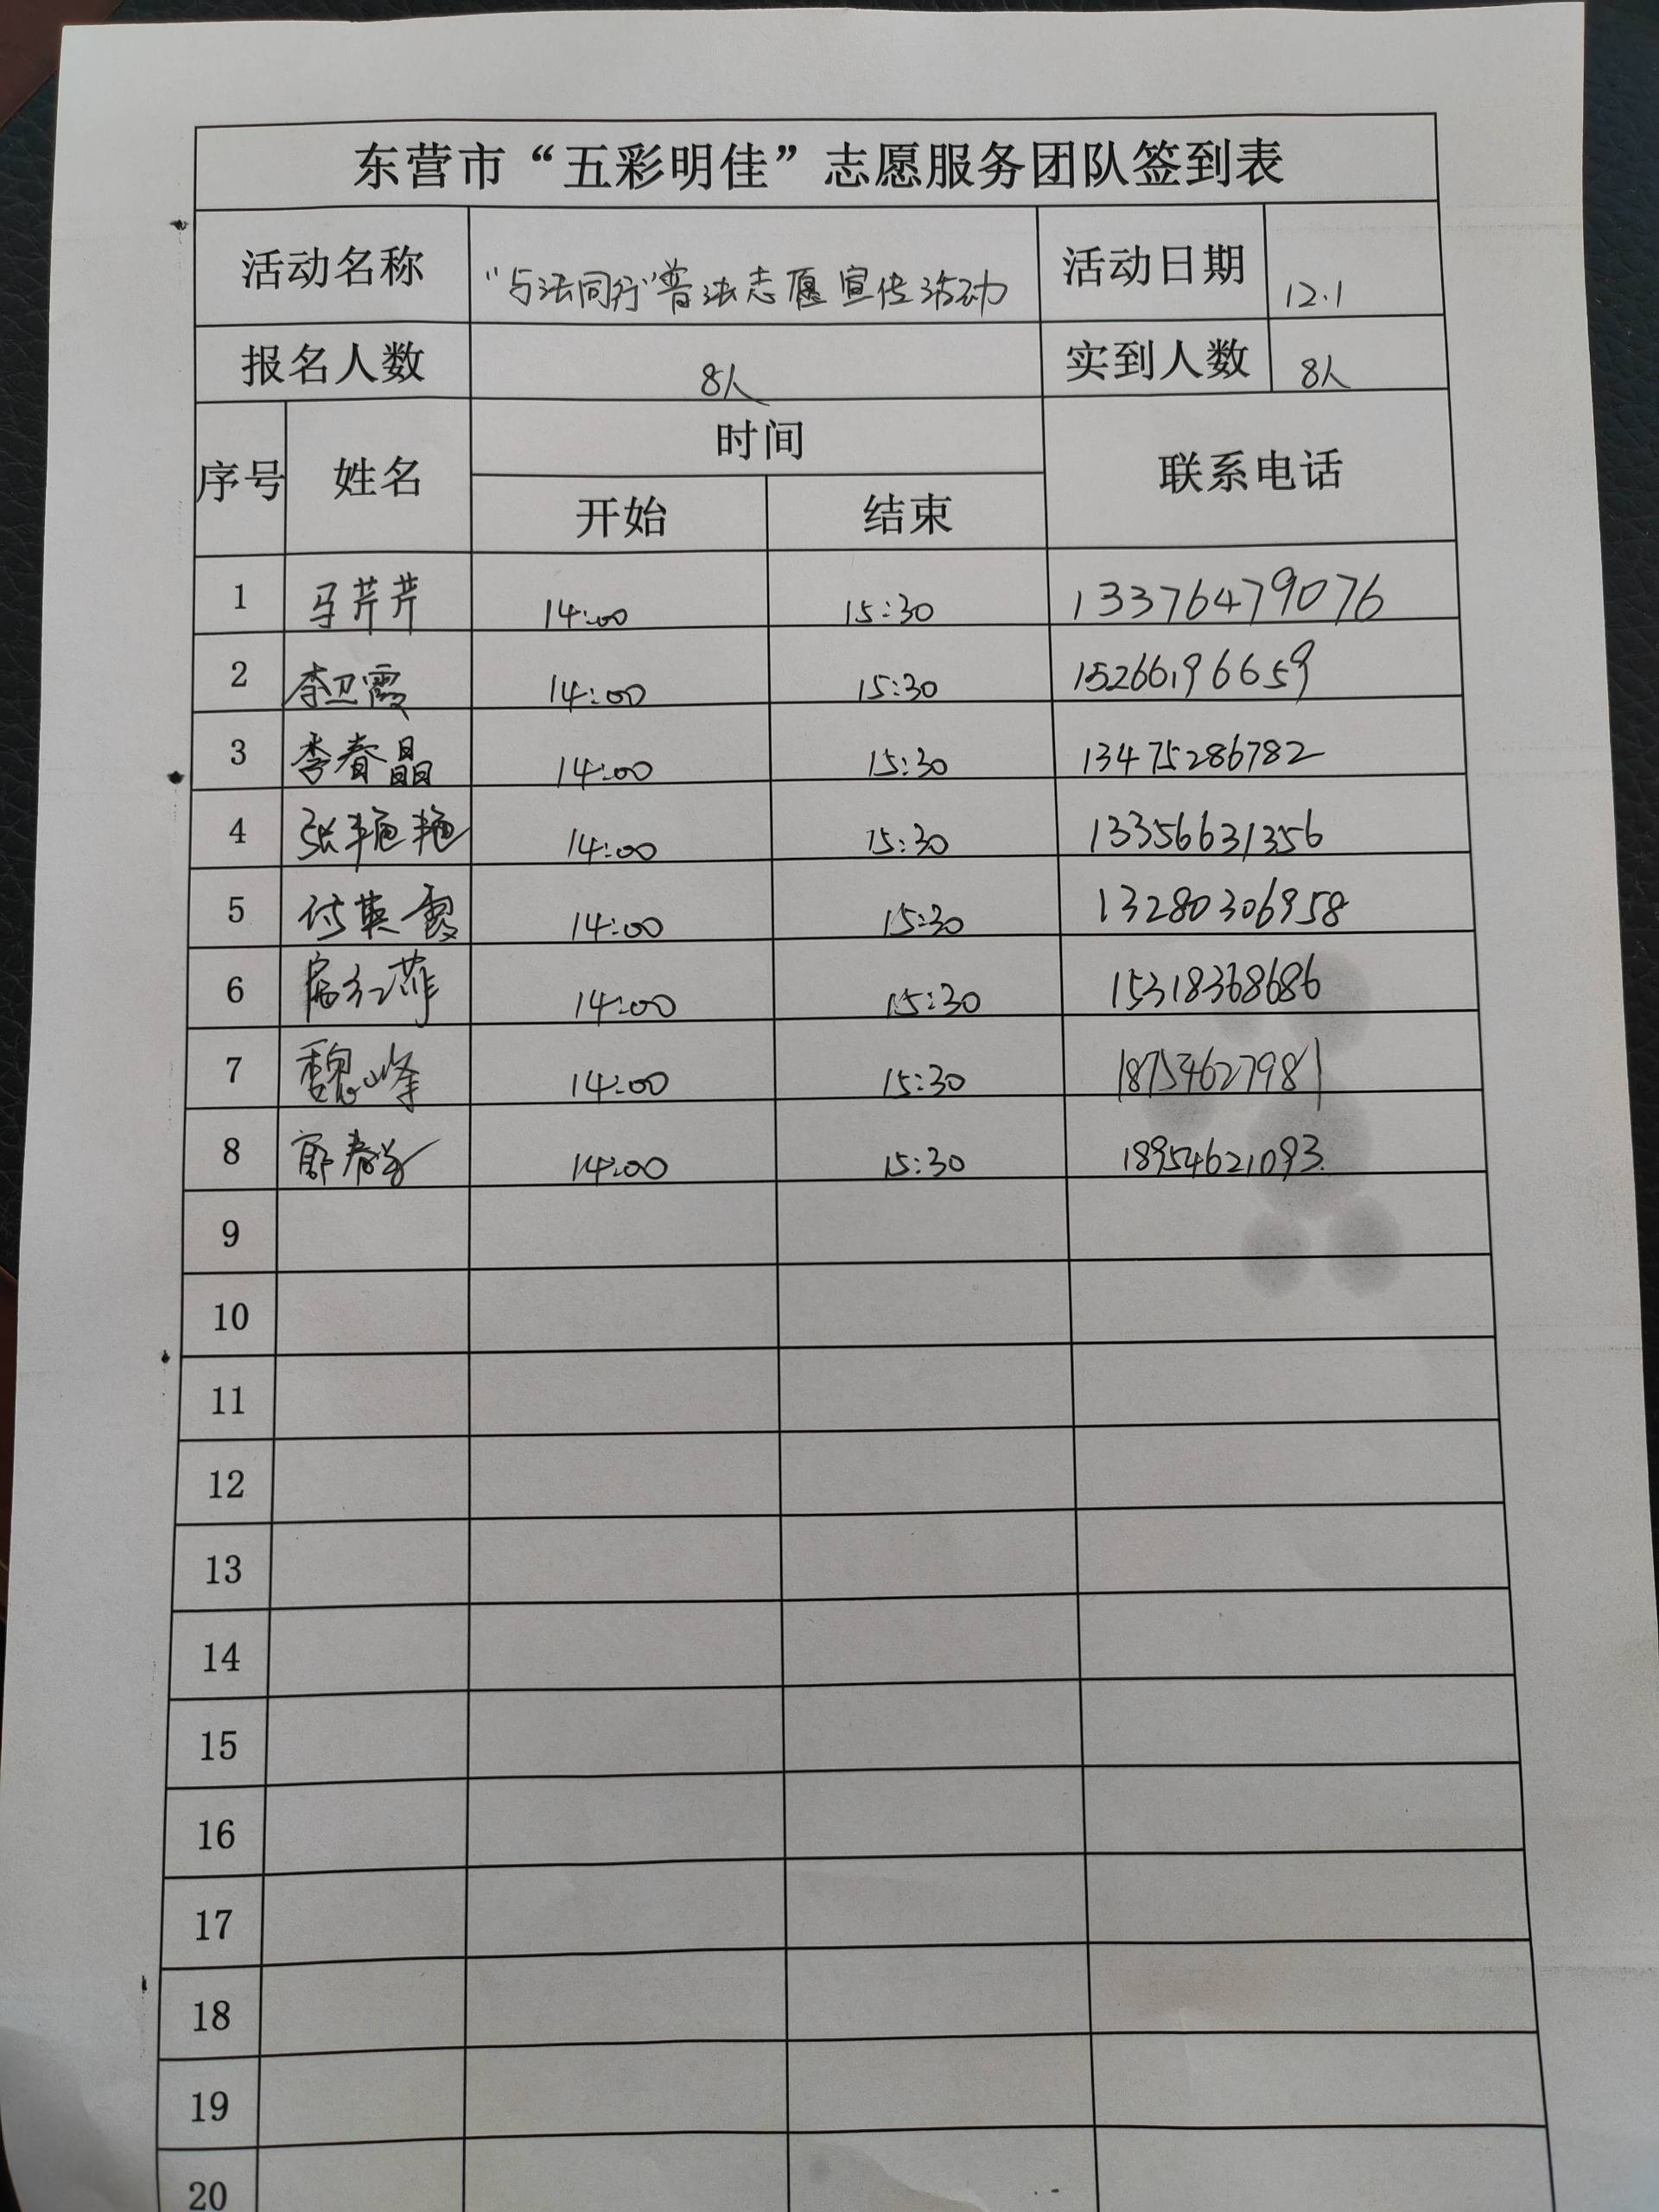 东营市“五彩明佳”志愿服务团队签到表
活动名称 “与法同行”普法志愿宣传活动 活动日期 12.1
报名人数 8人 实到人数 8人
序号 姓名 时间 联系电话
开始 结束
1 马芹芹 14:00 15:30 13376479076
2 李卫霞 14:00 15:30 15266196659
3 李春晶 14:00 15:30 13475286782
4 张艳艳 14:00 15:30 13356631356
5 付英霞 14:00 15:30 13280306958
6 14:00 15:30 15318368686
7 魏峰 14:00 15:30 18754627981
8 14:00 15:30 18954621093
9
10
11
12
13
14
15
16
17
18
19
20